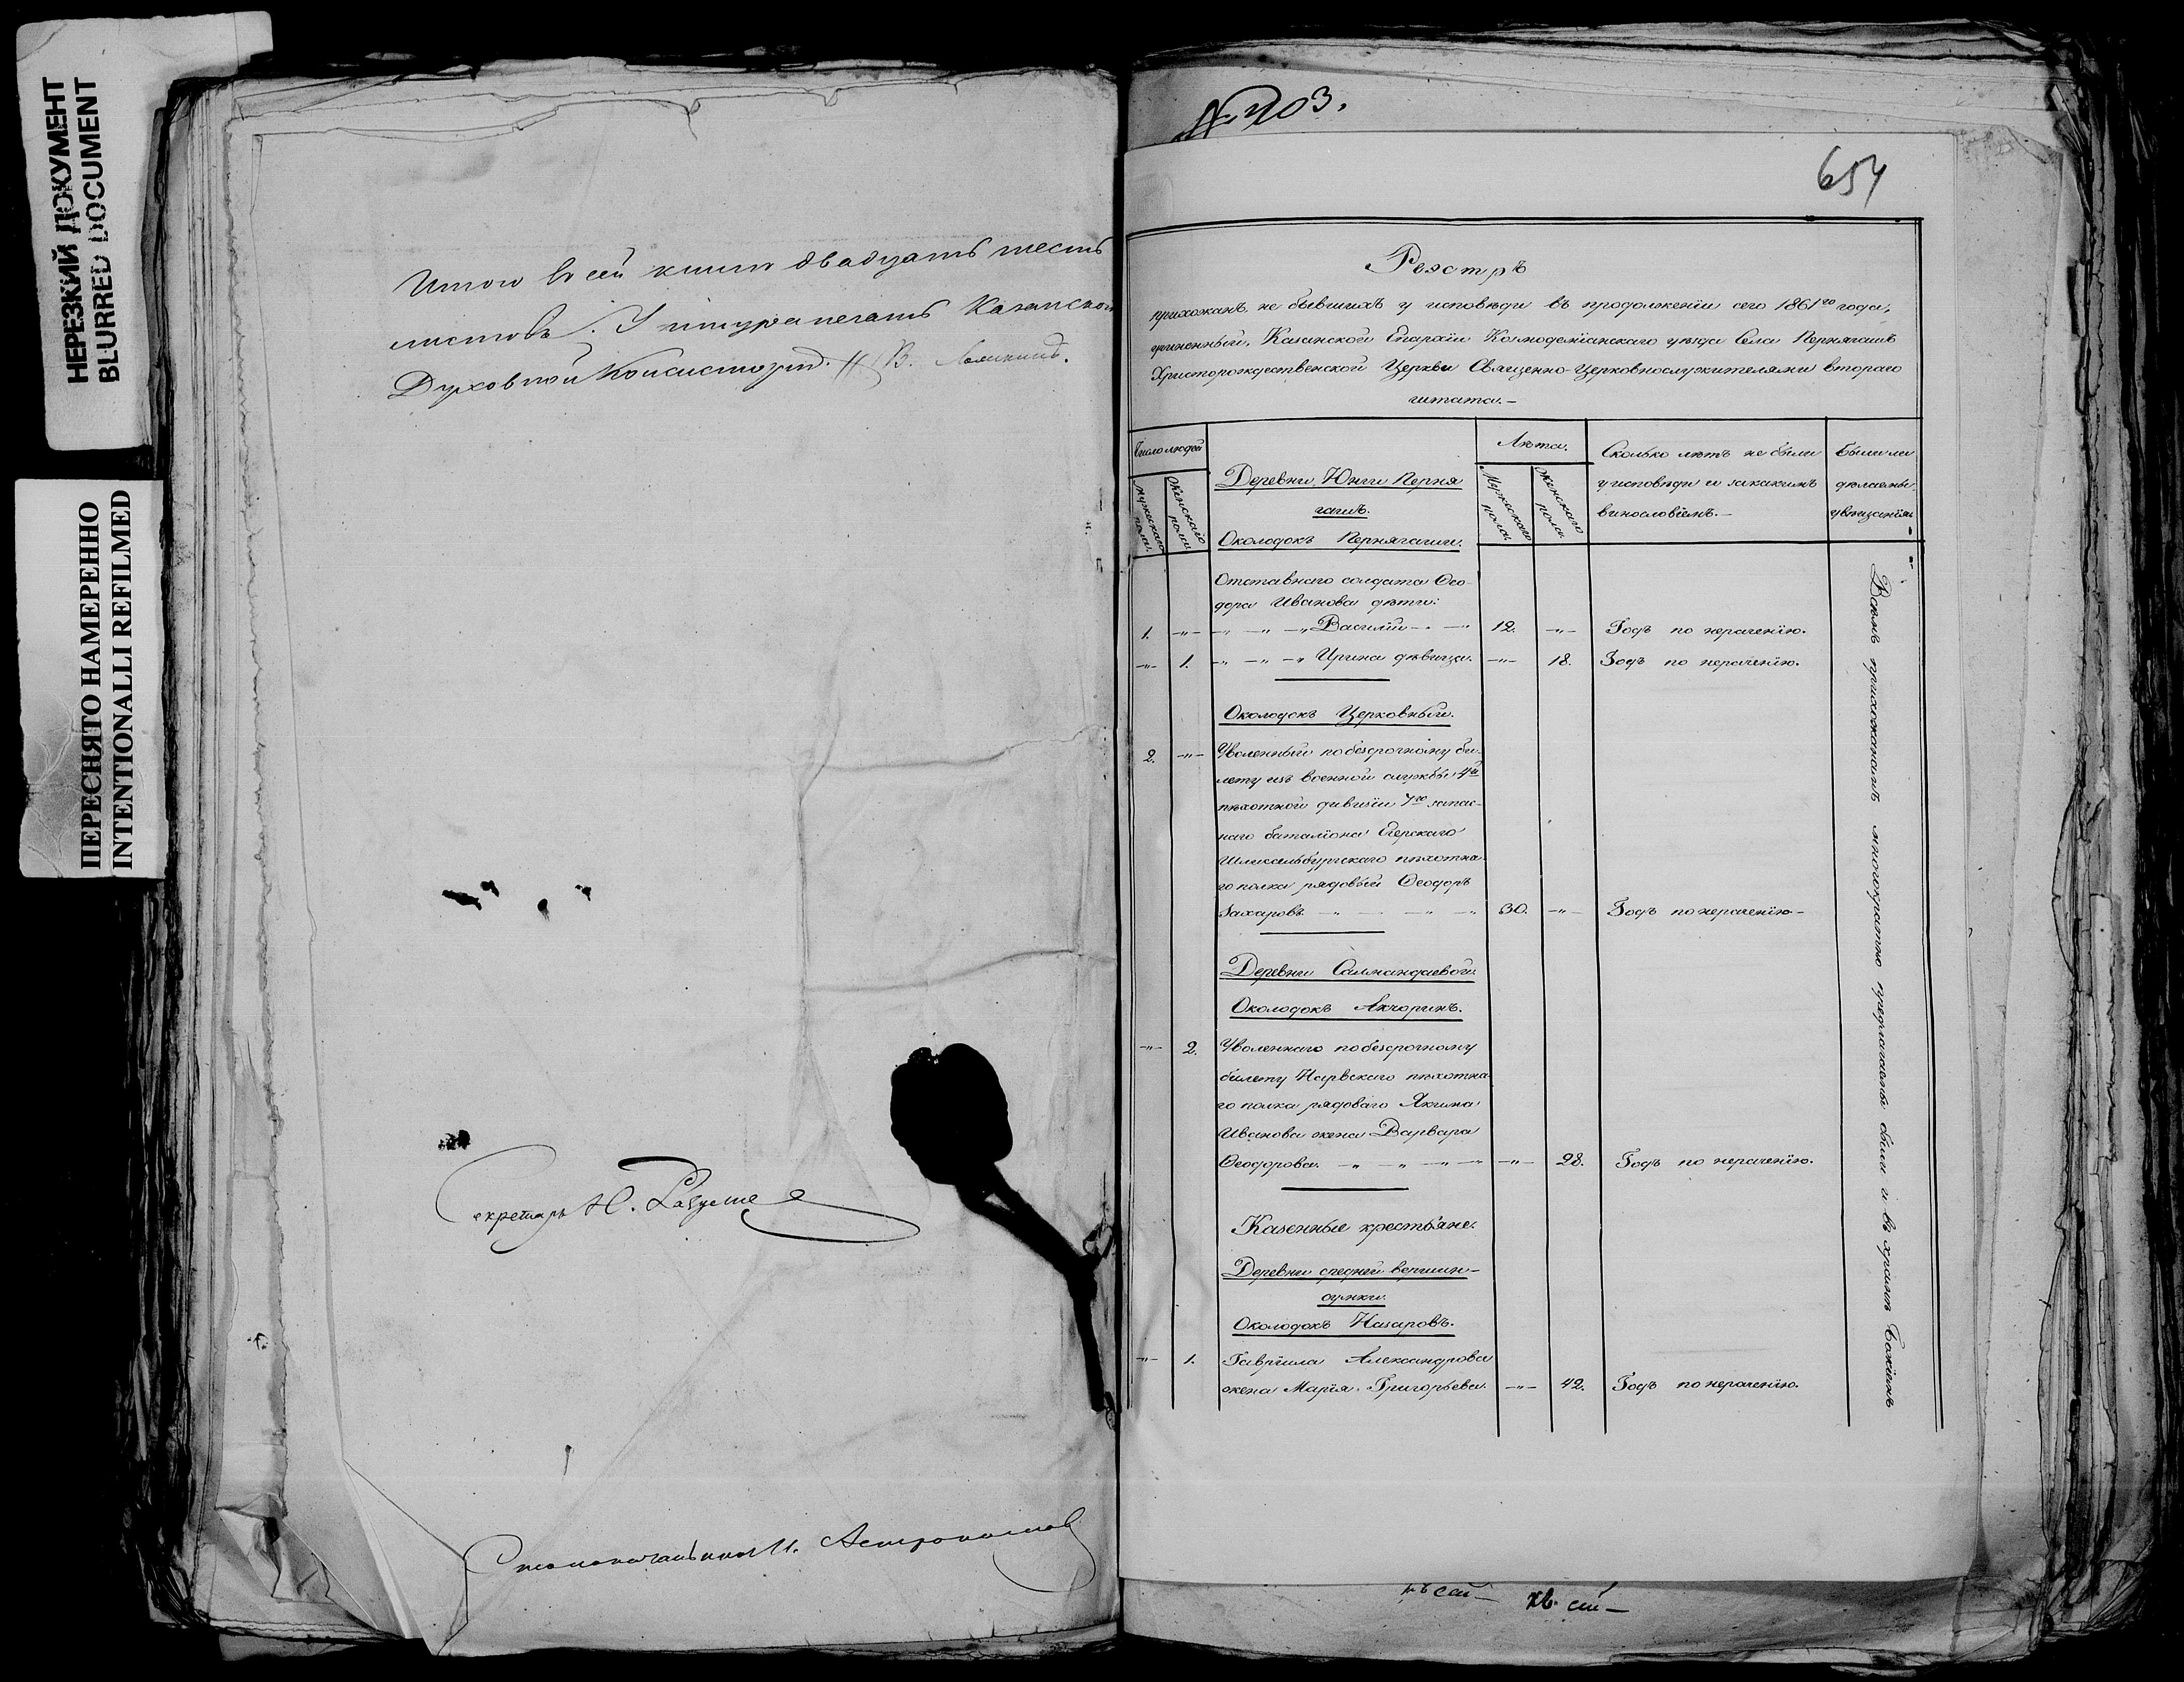 НЕРЕЗКИЙ ДОКУМЕНТ
BLURRED DOCUMENT
ПЕРЕСНЯТО НАМЕРЕННО
INTENTIONALLI REFILMED
Итого въ сей книге двадцать шесть
листовъ. У шнура печать Казанской
Духовной Консисторіи.
Секретарь Н.
Столоначальникъ И.
№ 203.
654
Реэстръ
прихожанъ, не бывшихъ у исповѣди въ продолженіи сего 1861го года,
учиненный, Казанской Епархіи Козмодемianского уѣзда Села Пернягашъ
Христорождественской Церкви Священно-Церковнослужителями втораго
штата.-
Число людей
мужескаго пола.
женскаго пола.
Деревни Юнги Перня
гашъ.
Околодокъ Пернягаши.
Лѣта.
Мужескаго пола.
женскаго пола.
Сколько лѣтъ не были
у исповѣди и за какимъ
винословіемъ.-
Были ли
дѣлаемы
увѣщанія.
Отставнаго солдата Ѳео-
дора Иванова дѣти:
1. -"- -"- Василій -"- 12. -"- Годъ по нераченію.
-"- 1. -"- Ирина дѣвица. -"- 18. Годъ по нераченію.
Околодокъ Церковный.
2. -"- Уволенный по безсрочному би-
лету изъ военной службы 4й
пѣхотной дивизіи 7го запас-
наго баталіона Егерскаго
Шлиссельбургскаго пѣхотна-
го полка рядовый Ѳеодоръ
Захаровъ. -"- 30. -"- Годъ по нераченію.-
Деревни Салмандаевой.
Околодокъ Акчоринъ.
-"- 2. Уволеннаго по безсрочному
билету Нарвскаго пѣхотна-
го полка рядоваго Якима
Иванова жена Варвара
Ѳеодорова. -"- -"- 28. Годъ по нераченію.
Казенные крестьяне.
Деревни средней вершин-
сумки.
Околодокъ Назаровъ.
-"- 1. Гавріила Александрова
жена Марія Григорьева. -"- 42. Годъ по нераченію.
Всѣмъ прихожанамъ многократно предлагаемы были и въ храмѣ Божіемъ